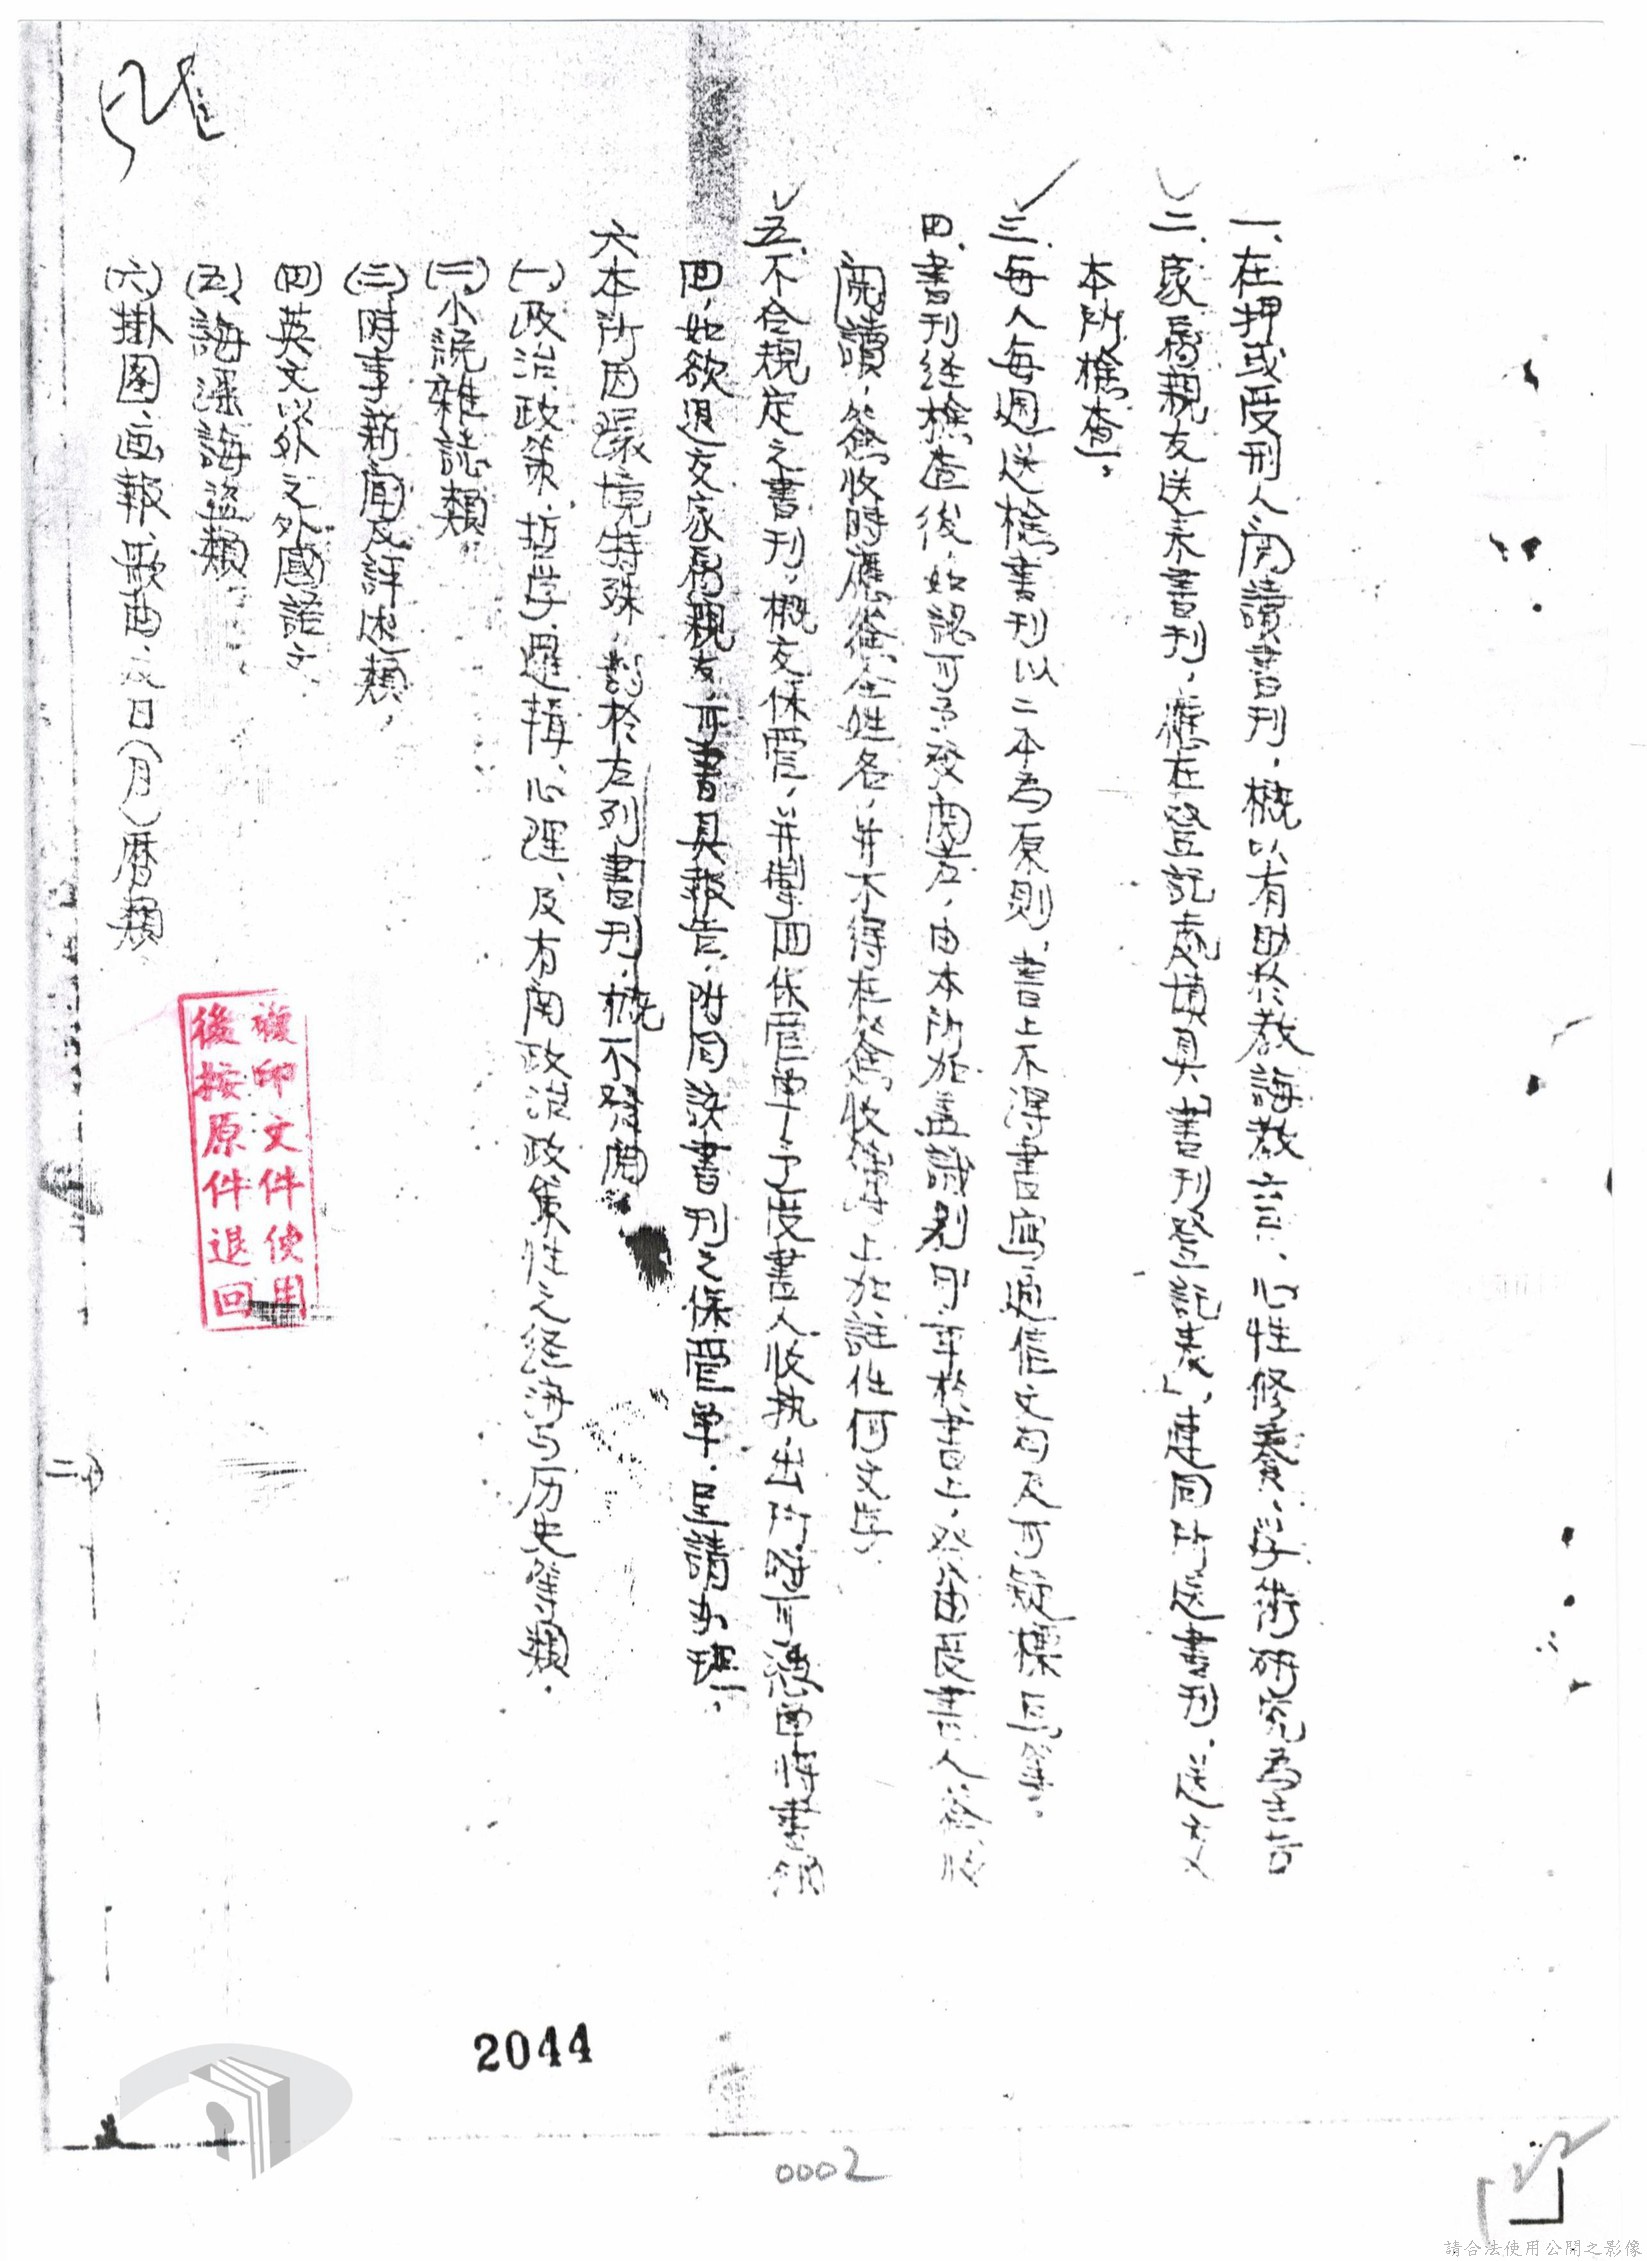 一、在押或受刑人閱讀書刊，概以有助於教誨教育、心性修養、学術研究為主旨
二、家屬親友送来書刊，應在登記處填具「書刊登記表」，連同所送書刊，送交
本所檢查。
三、每人每週送檢書刊以二本為原則，書上不得書寫通信文句及可疑標馬等。
四、書刊经檢查後，如認可予發閱者，由本所加盖識別月章於書上，發還受書人簽收
閱讀，簽收時應簽全姓名，并不得在簽收簿上加註任何文字，
五、不合規定之書刊，概交保管，并掣回保管單予受書人收执，出所時可憑單將書領
回，如欲退交家屬親友，可書具報告，附同該書刊之保管單，呈請办理，
六本所因環境特殊，對於左列書刊，概不發閱
(一)政治、政策、哲学、邏輯、心理、及有関政治政策性之经济与历史等類，
(二)小說雜誌類
(三)時事新聞及評述類，
(四)英文以外之外國語文
(五)誨淫誨盜類，
(六)掛圖、画報、歌曲、及日(月)曆類，
複印文件使用
後按原件退回
二
2044
0002
請合法使用公開之影像